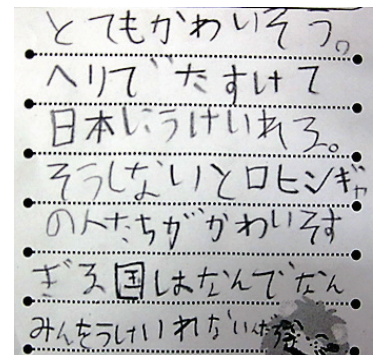 とてもかわいそう。
ヘリでたすけて
日本にうけいれろ。
そうしないとロヒンギャ
の人たちがかわいそす
ぎる国はなんでなん
みんをうけいれないんだ